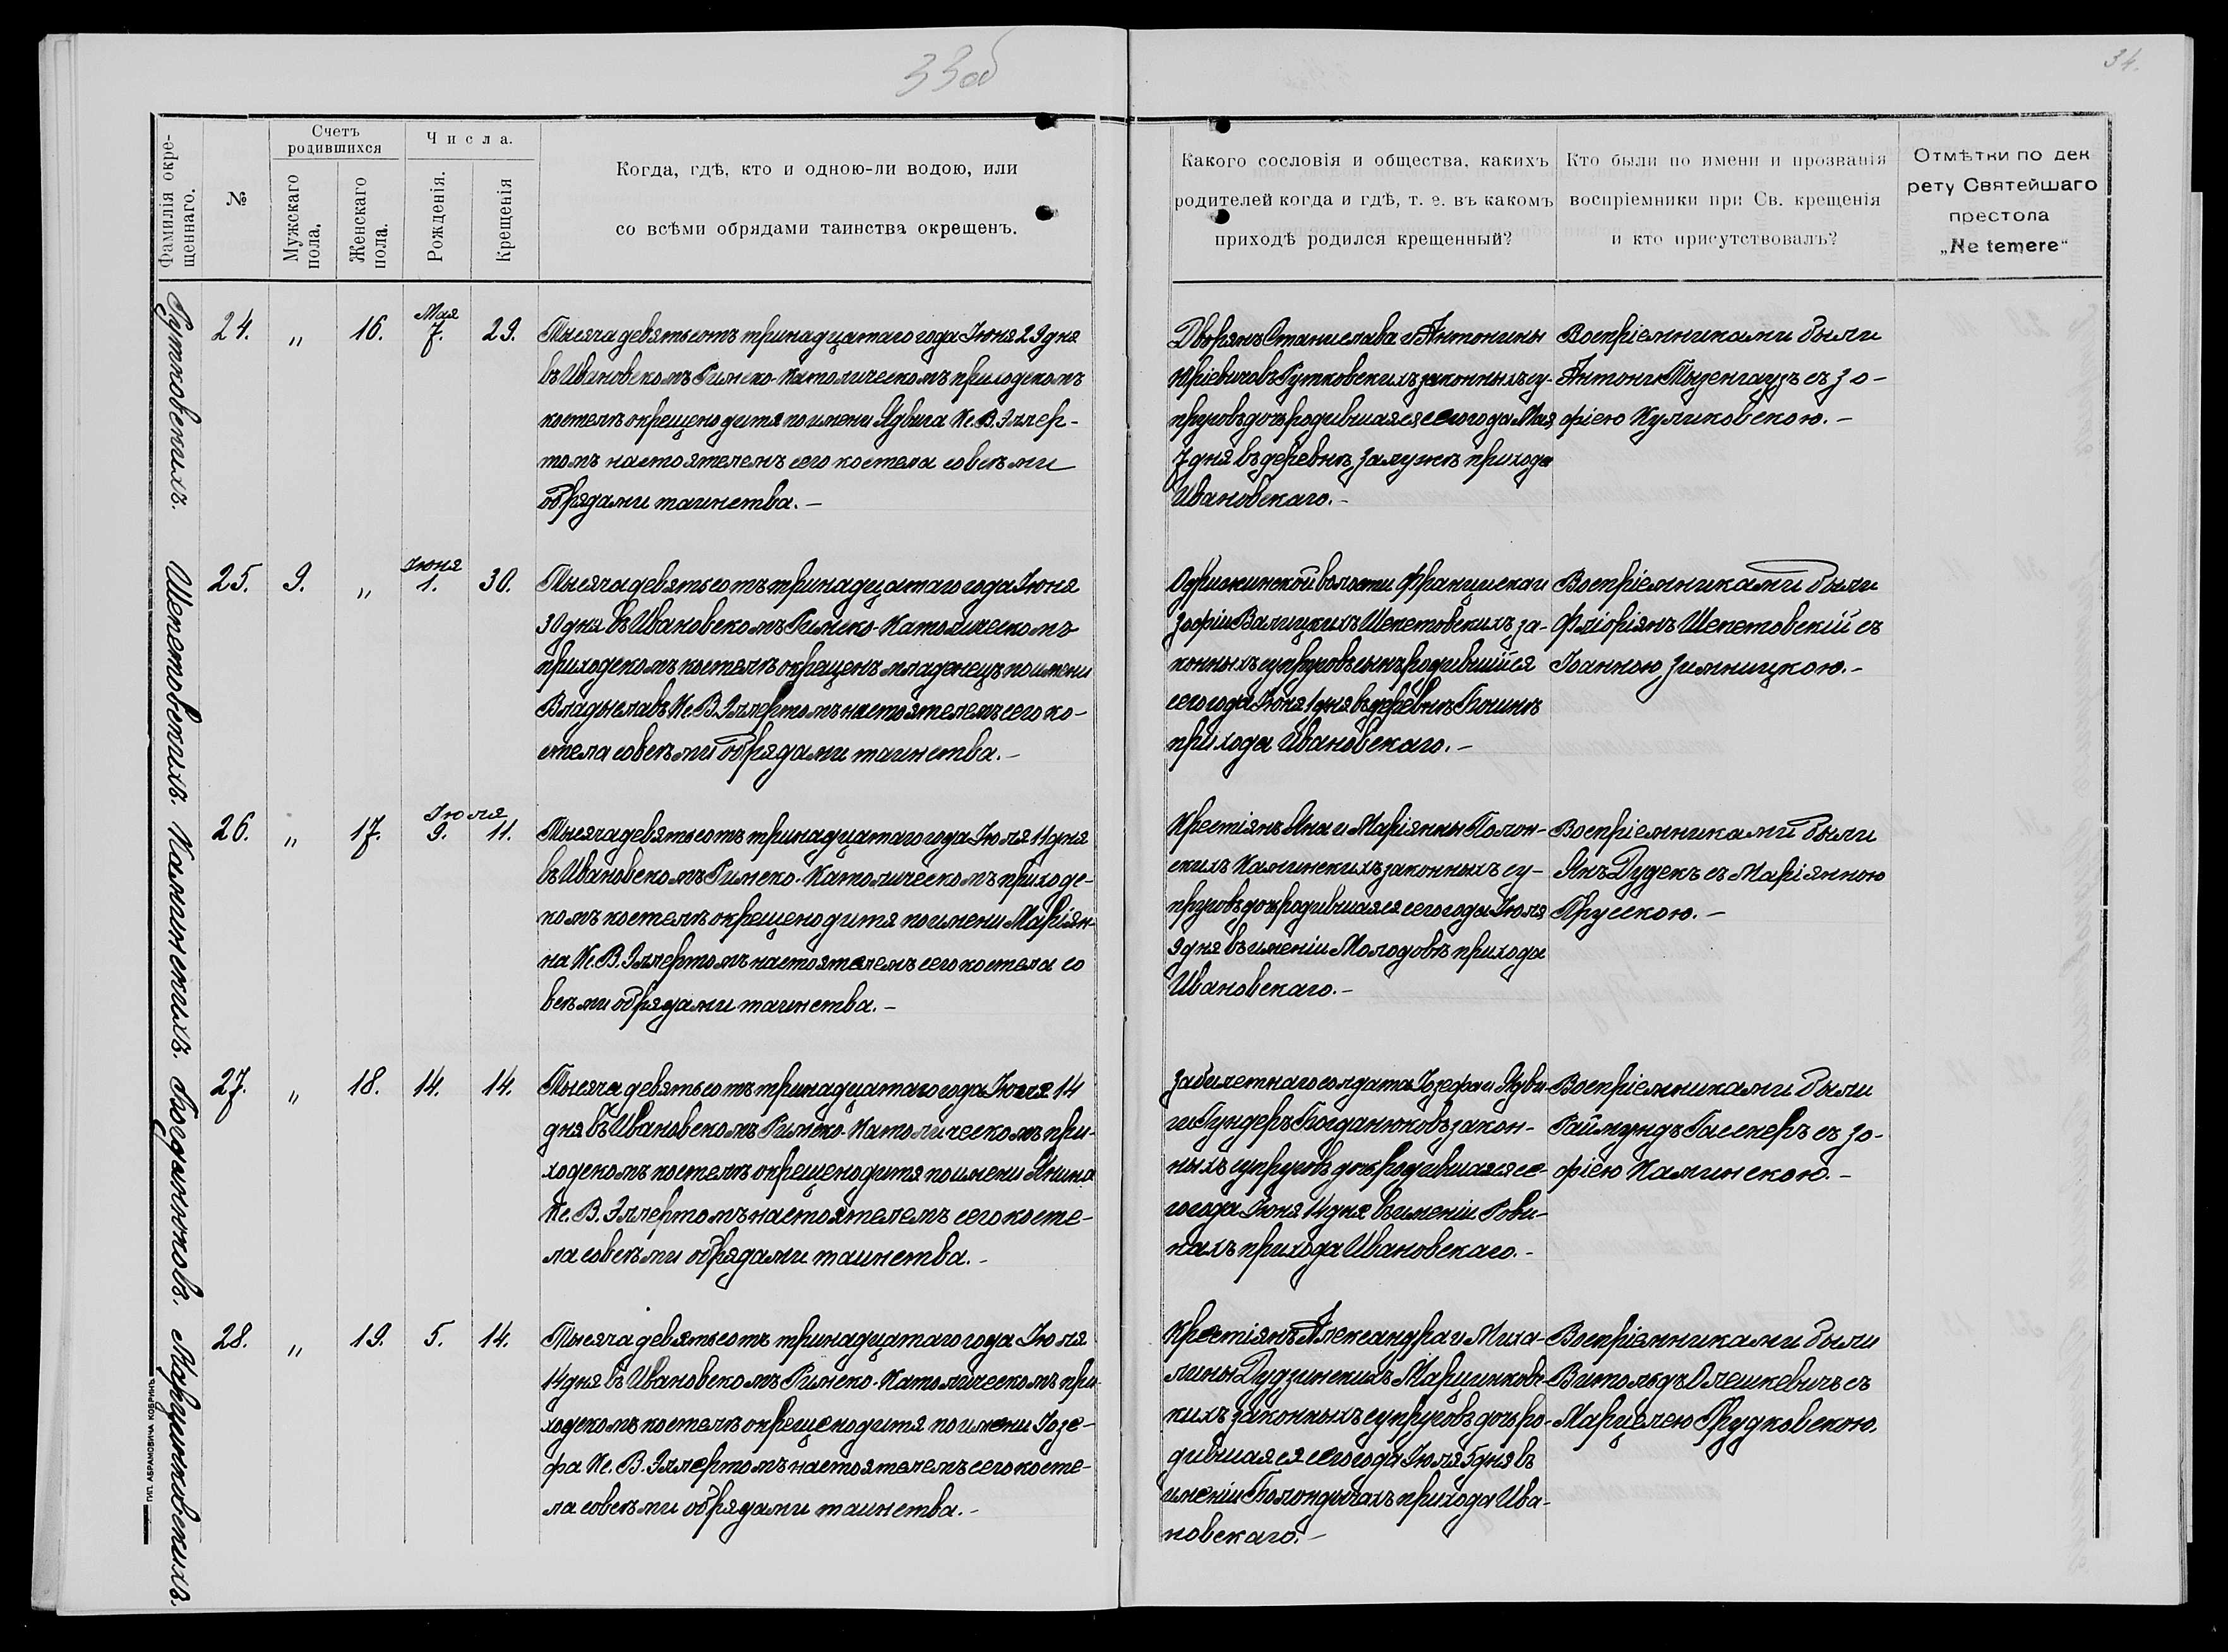 33об
34.
Фамилія окре-
щеннаго.
№
Счетъ
родившихся
Мужскаго
пола.
Женскаго
пола.
Числа.
Рожденія.
Крещенія
Когда, гдѣ, кто и одною-ли водою, или
со всѣми обрядами таинства окрещенъ.
Какого сословія и общества, какихъ
родителей когда и гдѣ, т. е. въ какомъ
приходѣ родился крещенный?
Кто были по имени и прозванія
воспріемники при Св. крещенія
и кто присутствовалъ?
Отмѣтки по дек
рету Святейшаго
престола
„Ne temere“
Рутковскихъ.
24. „ 16. Мая 7. 29.
Тысяча девятьсотъ тринадцатаго года Іюня 29 дня
въ Ивановскомъ Римско-Католическомъ приходскомъ
костелѣ окрещено дитя по имени Ядвига Кс. В. Эллер-
томъ настоятелемъ сего костела совсѣми
обрядами таинства. –
Дворянъ Станислава и Антонины
Юріевичовъ Рутковскихъ законныхъ су-
пруговъ дочь родившаяся сего года Мая
7 дня въ деревнѣ Залужѣ прихода
Ивановскаго. –
Воспріемниками были
Антони Тызенгаузъ съ Зо-
фіею Куликовскою. –
Шепетовскихъ.
25. 9. „ Іюня 1. 30.
Тысяча девятьсотъ тринадцатаго года Іюня
30 дня въ Ивановскомъ Римско-Католическомъ
приходскомъ костелѣ окрещенъ младенецъ по имени
Владыславъ Кс. В. Эллертомъ настоятелемъ сего ко-
стела совсѣми обрядами таинства. –
Одрижинской волости Францишка и
Зофіи Валицкихъ Шепетовскихъ за-
конныхъ супруговъ сынъ родившійся
сего года Іюня 1 дня въ деревнѣ
прихода Ивановскаго. –
Воспріемниками были
Флоріянъ Шепетовскій съ
Іоанною Зимницкою. –
Каминскихъ.
26. „ 17. Іюля 9. 11.
Тысяча девятьсотъ тринадцатаго года Іюля 11 дня
въ Ивановскомъ Римско-Католическомъ приходс-
комъ костелѣ окрещено дитя по имени Маріян-
на Кс. В. Эллертомъ настоятелемъ сего костела со
всѣми обрядами таинства. –
Крестіянъ Яна и Маріянны Полон-
скихъ Каминскихъ законныхъ су-
пруговъ дочь родившаяся сего года Іюля
9 дня въ имѣніи Молодовѣ прихода
Ивановскаго. –
Воспріемниками были
Янъ Дудекъ съ Маріянною
Прусскою. –
Богданюковъ.
27. „ 18. 14. 14.
Тысяча девятьсотъ тринадцатаго года Іюля 14
дня въ Ивановскомъ Римско-Католическомъ при-
ходскомъ костелѣ окрещено дитя по имени Янина
Кс. В. Эллертомъ настоятелемъ сего косте-
ла совсѣми обрядами таинства. –
Забилетнаго солдата Іозефа и Ядви-
ги Гундеръ Богданюковъ закон-
ныхъ супруговъ дочь родившаяся се-
го года Іюня 14 дня въ имѣніи Рови-
нахъ прихода Ивановскаго. –
Воспріемниками были
Раймундъ Гасперъ съ Зо-
фіею Каминскою. –
Марцинковскихъ.
28. „ 19. 5. 14.
Тысяча девятьсотъ тринадцатаго года Іюля
14 дня въ Ивановскомъ Римско-Католическомъ при-
ходскомъ костелѣ окрещено дитя по имени Іозе-
фа Кс. В. Эллертомъ настоятелемъ сего косте-
ла совсѣми обрядами таинства. –
Крестіянъ Александра и Миха-
лины Дудзинскихъ Марцинковс-
кихъ законныхъ супруговъ дочь ро-
дившаяся сего года Іюля 5 дня въ
имѣніи Полондычахъ прихода Ива-
новскаго. –
Воспріемниками были
Витольдъ Олешкевичъ съ
Марцелею Грудковскою.
ТИП. АБРАМОВИЧА КОБРИНЪ